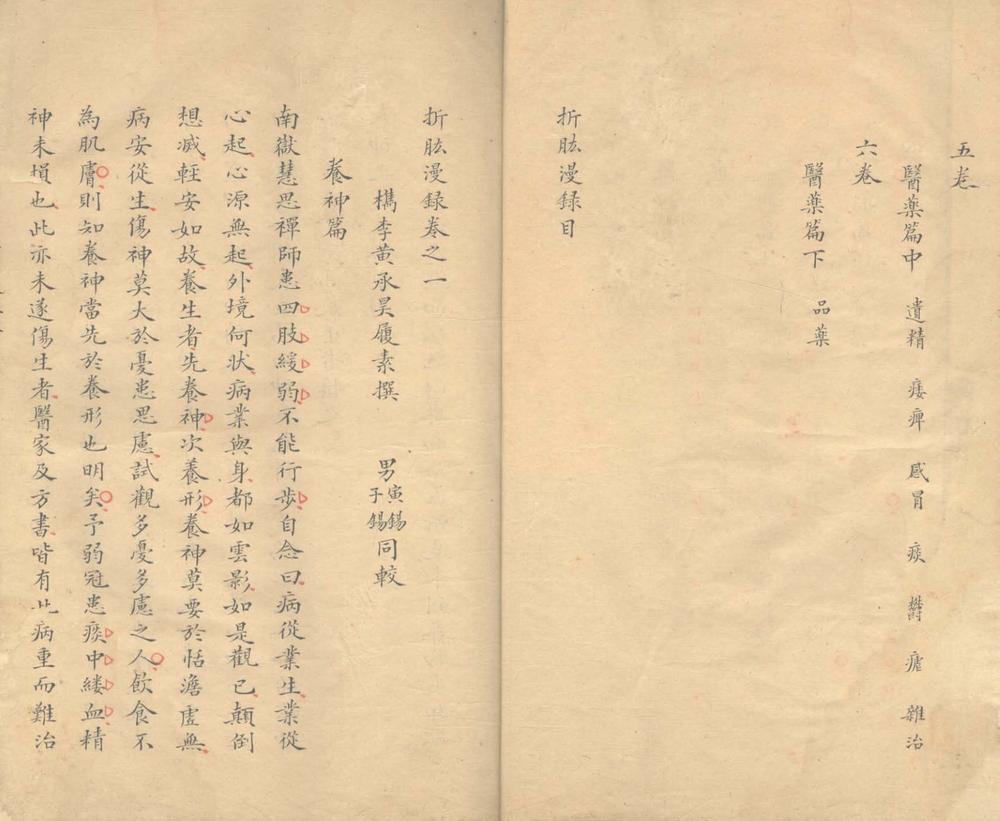 五卷
醫藥篇中　遺精　痿痺　感冒　痰　鬱　瘧　雜治
六卷
醫藥篇下　品藥
折肱漫録目
折肱漫録卷之一
檇李黄承昊履素撰　男寅錫子錫同較
養神篇
南嶽慧思禪師患四肢緩弱不能行步自念曰病從業生業從
心起心源無起外境何狀病業與身都如雲影如是觀已顛倒
想滅輕安如故養生者先養神次養形養神莫要於恬澹虛無
病安從生傷神莫大於憂患思慮試觀多憂多慮之人飲食不
為肌膚則知養神當先於養形也明矣予弱冠患痰中縷血精
神未損也此亦未遂傷生者醫家及方書皆有此病重而難治